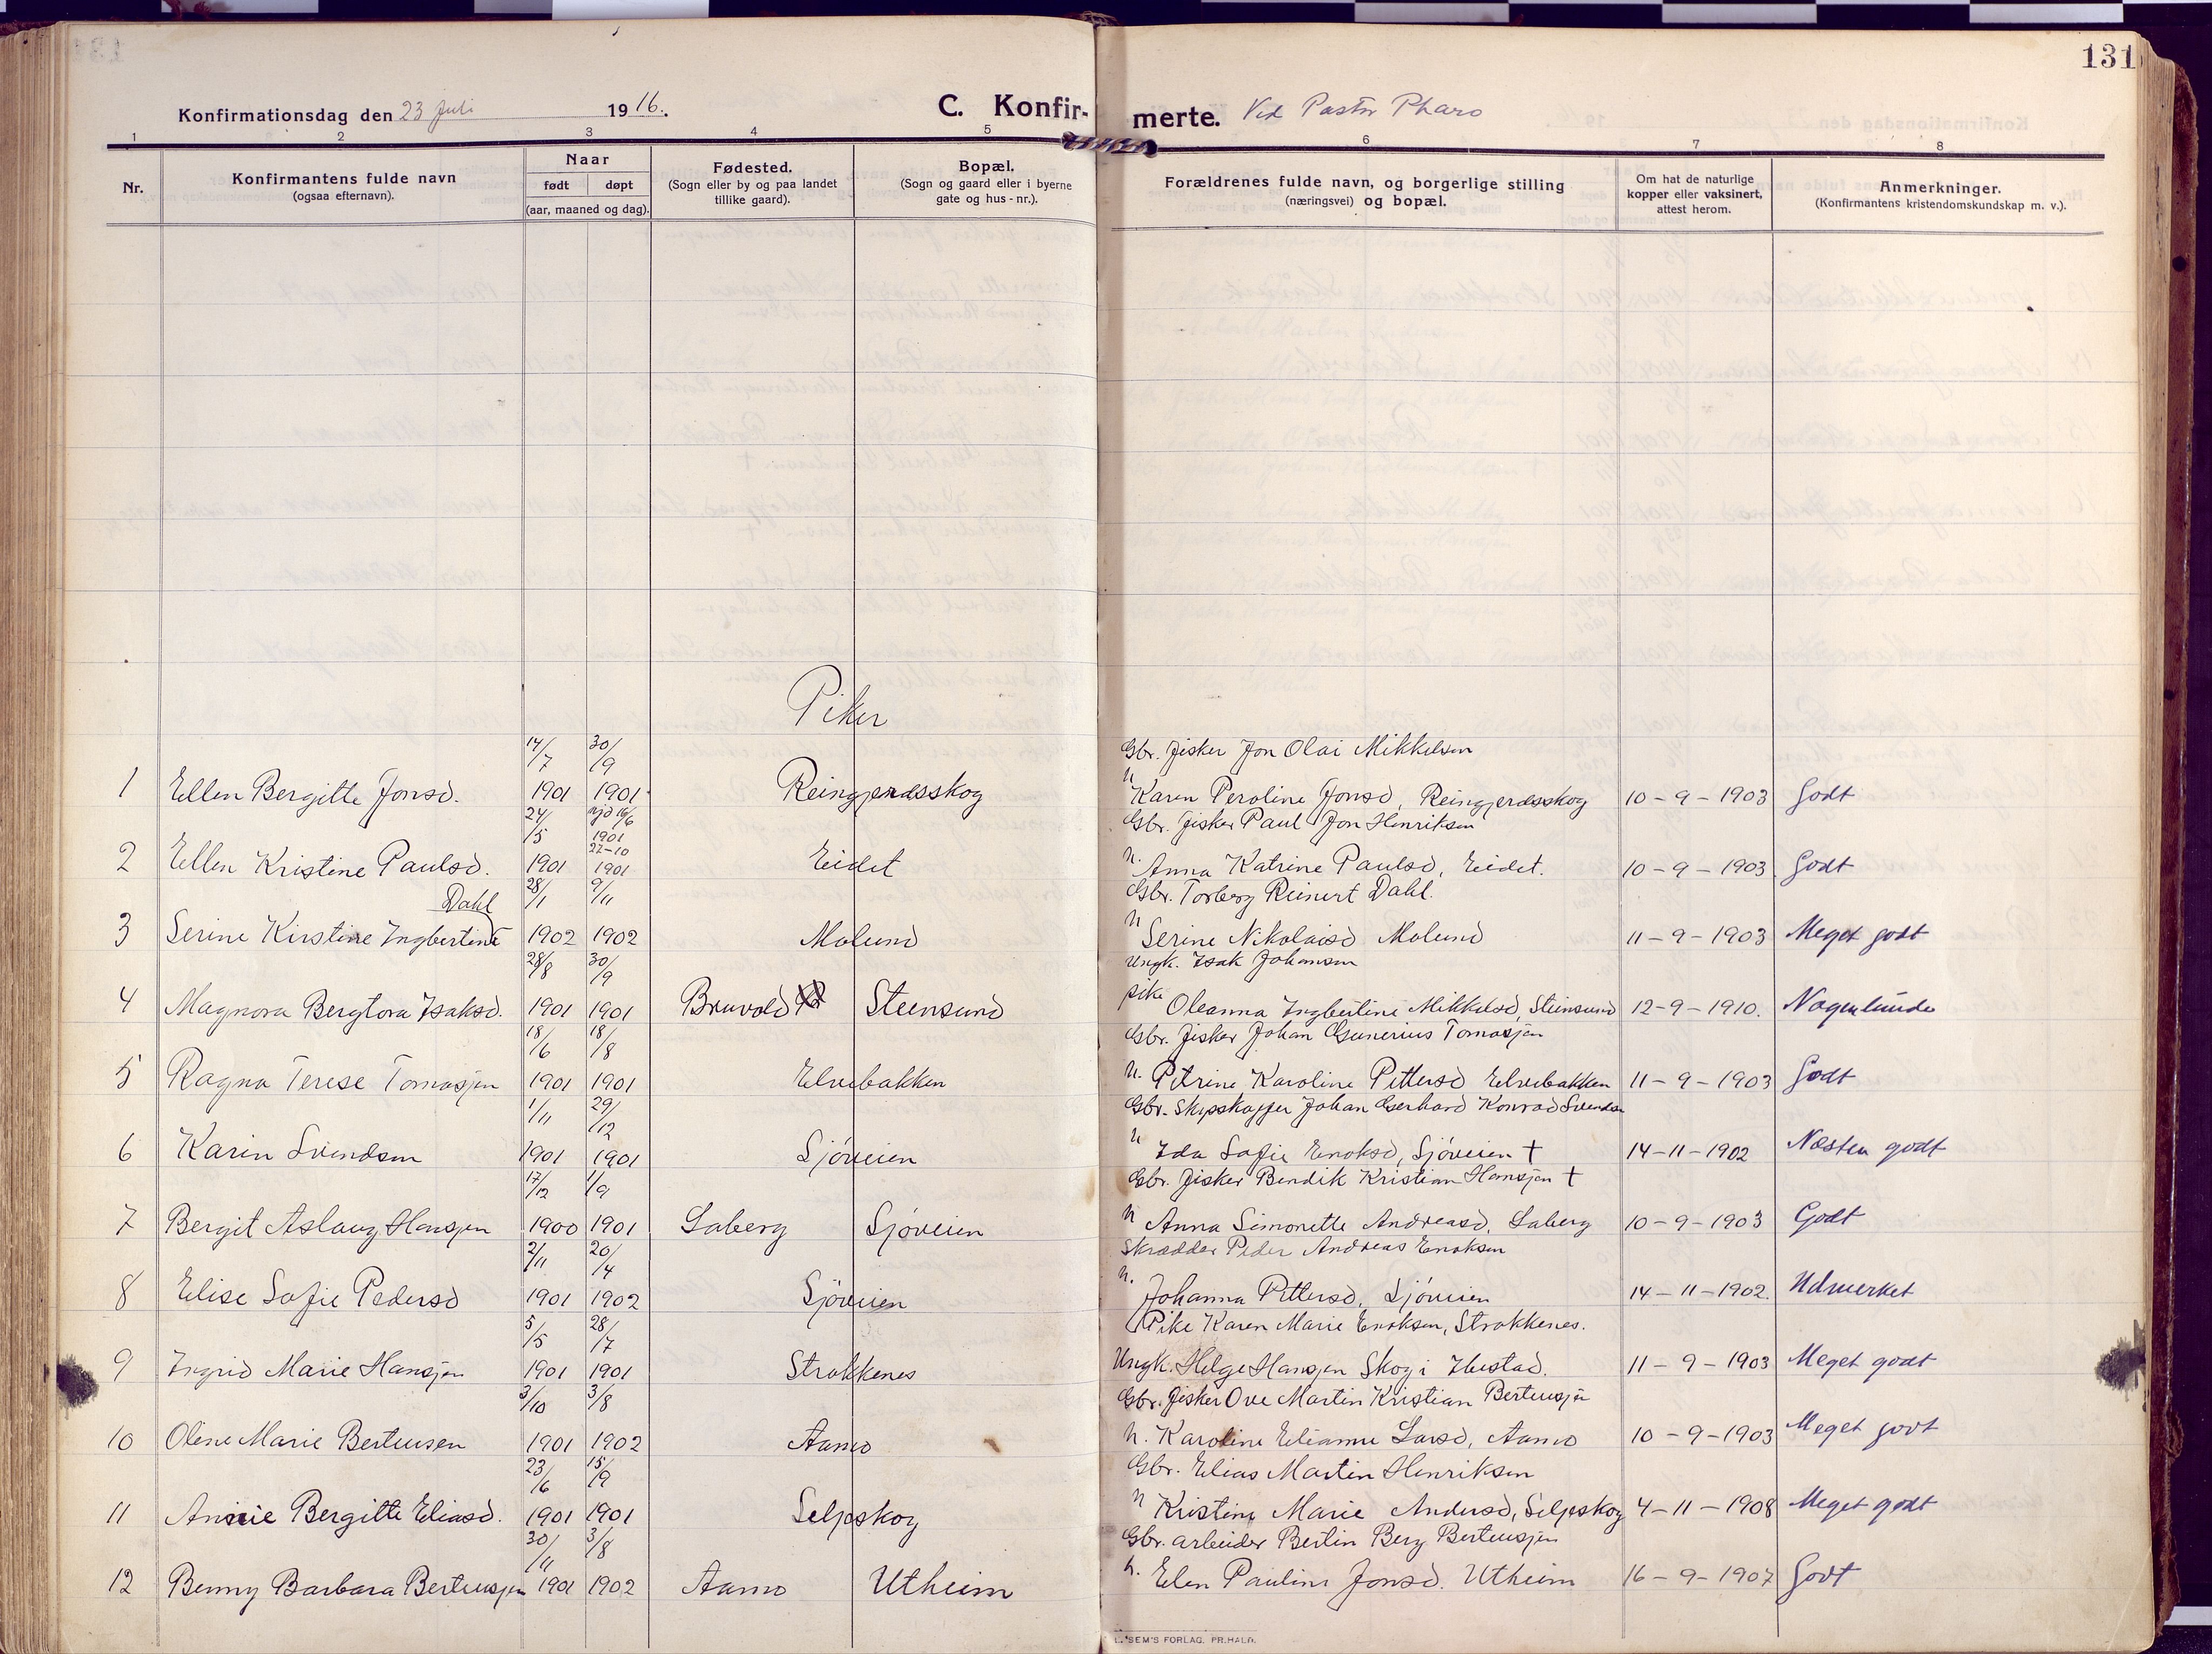 131
Konfirmationsdag den 23 Juli 1916.
C. Konfirmerte. Ved Pastor Pharo
1 2 3 4 5 6 7 8
Nr.
Konfirmantens fulde navn
(ogsaa efternavn).
Naar
født døpt
(aar, maaned og dag).
Fødested.
(Sogn eller by og paa landet
tillike gaard).
Bopæl.
(Sogn og gaard eller i byerne
gate og hus-nr.).
Forældrenes fulde navn, og borgerlige stilling
(næringsvei) og bopæl.
Om hat de naturlige
kopper eller vaksinert,
attest herom.
Anmerkninger.
(Konfirmantens kristendomskundskap m. v.).
Piker
14/7 30/9 Gbr. fisker Jon Olai Mikkelsen
1 Ellen Bergitte Jonsd. 1901 1901 Reingjerdsskog H Karen Peroline Jonsd, Reingjerdsskog 10-9-1903 Godt
24/5 hjd 16/6 1901 Gbr. fisker Paul Jon Henriksen
22-10
2 Ellen Kristine Paulsd. 1901 1901 Eidet H. Anna Katrine Paulsd, Eidet. 10-9-1903. Godt
Dahl 28/1 9/11 Gbr. Torberg Reinert Dahl.
3 Serine Kirstine Ingbertine 1902 1902 Molund H Serine Nikolaisd Molund 11-9-1903 Meget godt
28/8 30/9 Ungk. Isak Johansen
4 Magnora Bergtora Isaksd. 1901 1901 Bruvold Steensund pike Oleanna Ingbertine Mikkelsd, Steinsund 12-9-1910. Nogenlunde
18/6 18/8 Gbr. fisker Johan Gunerius Tomasjen
5 Ragna Terese Tomasjen 1901 1901 Elvebakken H. Petrine Karoline Pettersd Elvebakken 11-9-1903 Godt
1/11 29/12 Gbr. Skipskapper Johan Gerhard Konrad Svendsen
6 Karin Svendsen 1901 1901 Sjöveien H Ida Sofie Enoksd, Sjöveien † 14-11-1902 Næsten godt
17/12 1/9 Gbr. fisker Bendik Kristian Hansjen †
7 Bergit Aslaug Hansjen 1900 1901 Laberg Sjöveien H Anna Simonette Andreasd, Laberg 10-9-1903 Godt
2/11 20/4 Skrædder Peder Andreas Enoksen
8 Elise Sofie Pedersd 1901 1902 Sjöveien H. Johanna Pettersd, Sjöveien 14-11-1902. Udmerket
5/5 28/7 Pike Karen Marie Enoksen, Strokkenes.
9 Ingrid Marie Hansjen 1901 1901 Strokkenes Ungk. Helge Hansjen Skog i Ibestad. 11-9-1903 Meget godt
3/10 3/8 Gbr. fisker Ove Martin Kristian Berteusjen
10 Oline Marie Berteusen 1901 1902 Aamo H. Karoline Elianne Larsd, Aamo 10-9-1903 Meget godt
23/6 15/9 Gbr. Elias Martin Henriksen
11 Annie Bergitte Eliasd. 1901 1901 Seljeskog H Kristine Marie Andersd, Seljeskog 4-11-1908 Meget godt
30/11 3/8 Gbr. arbeider Bertin Berg Berteusjen
12 Benny Barbara Berteusjen 1901 1902 Aamo Utheim H. Elen Pauline Jonsd. Utheim 16-9-1907 Godt
SEM'S FORLAG, PR.HALD.